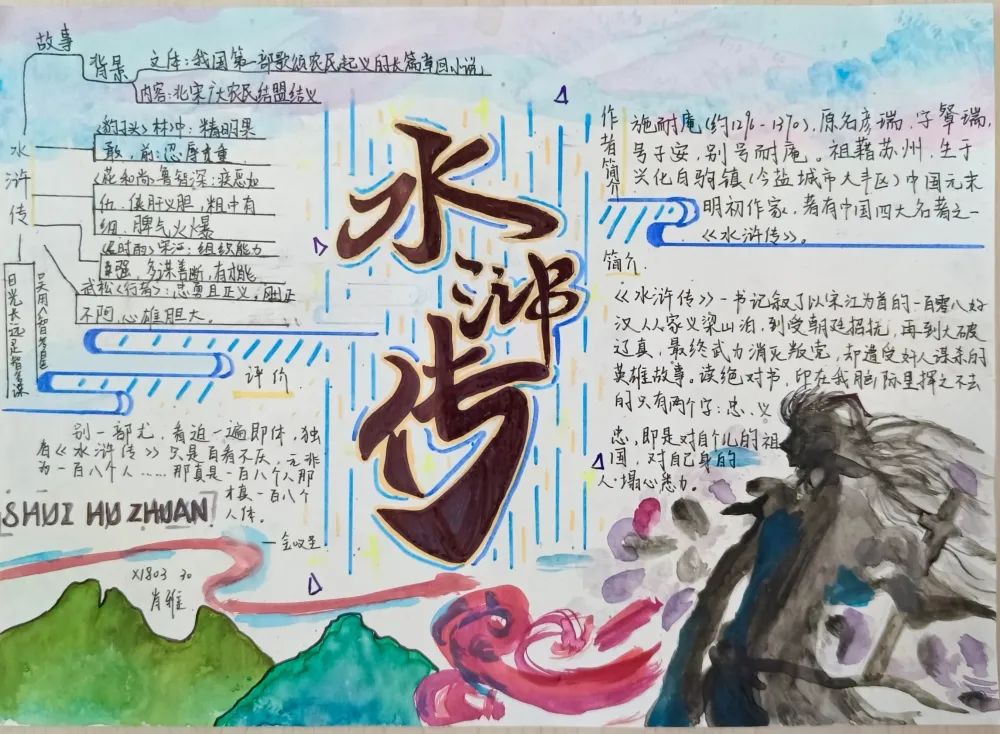 故事
背景
文体：我国第一部歌颂农民起义的长篇章回小说
内容：北宋广大农民结盟结义
水浒传
《豹子头》林冲：精明果
敢，前：忍辱负重
《花和尚》鲁智深：疾恶如
仇、侠肝义胆，粗中有
细、脾气火爆
《及时雨》宋江：组织能力
强，多谋善断，有才能
武松《行者》：忠勇且正义，刚正
不阿，心雄胆大。
吴用《智多星》
目光长远足智多谋
评价.
别一部尤，看迫一遍即体，独
看《水浒传》只是自看不厌，无非
为一百八个人……那真是一百八个人那
才真一百八个
人体。
—金叹圣
SHUI HU ZHUAN
X1803 30
肖雅
水
浒
传
作者简介
施耐庵(约1296-1370)，原名彦瑞，字肇瑞，
号子安，别号耐庵。祖籍苏州，生于
兴化白驹镇(今盐城市大丰区)中国元末
明初作家，著有中国四大名著之一
《水浒传》。
简介.
《水浒传》一书记叙了以宋江为首的一百零八好
汉从家义梁山泊，到受朝廷招抚，再到大破
辽真，最终武力消灭叛党，却遭受奸人谋杀的
英雄故事。读绝对书，印在我脑际里挥之不去
的只有两个字：忠、义
忠，即是对自个儿的祖
国，对自己身的
人·塌心悉力。